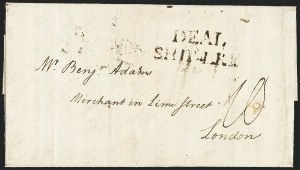 DEAL
SHIP LRE
Mr. Benjn Adams
Merchant in Lime Street
London